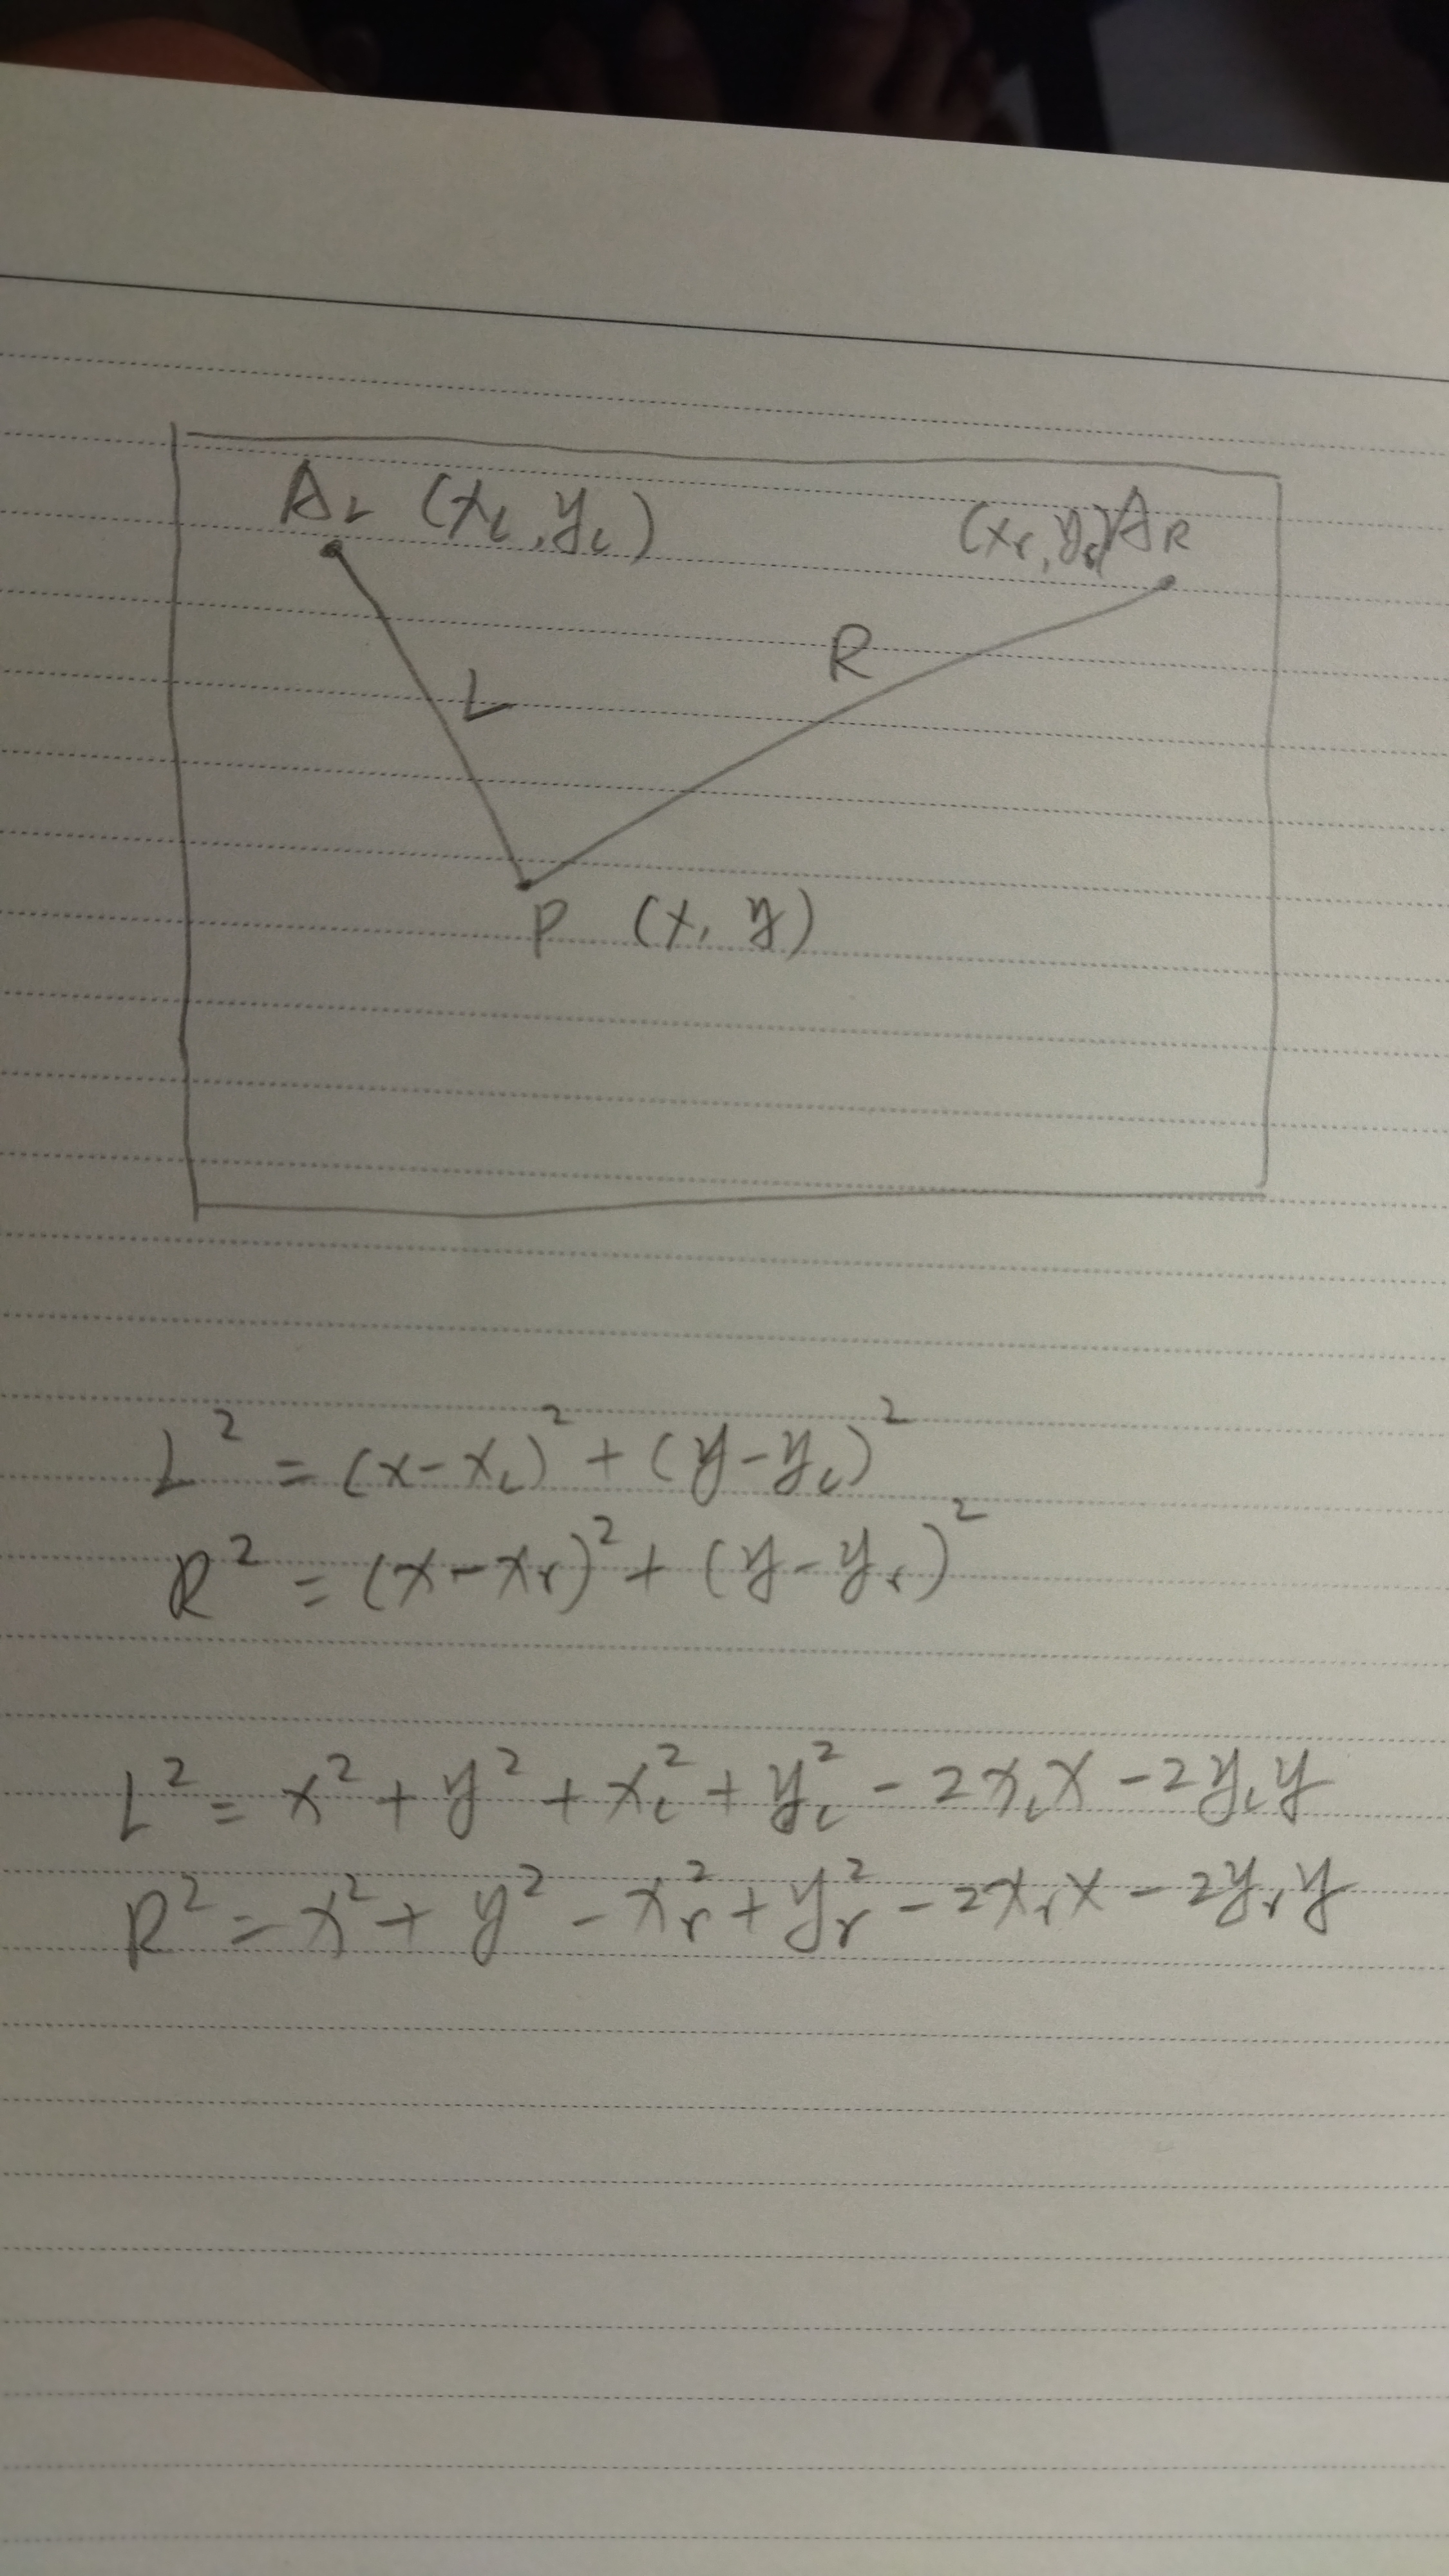 A_L (x_L, y_L)
(x_r, y_r) A_R
R
L
P (x, y)
L² = (x - x_L)² + (y - y_L)²
R² = (x - x_r)² + (y - y_r)²
L² = x² + y² + x_L² + y_L² - 2x_L x - 2y_L y
R² = x² + y² - x_r² + y_r² - 2x_r x - 2y_r y